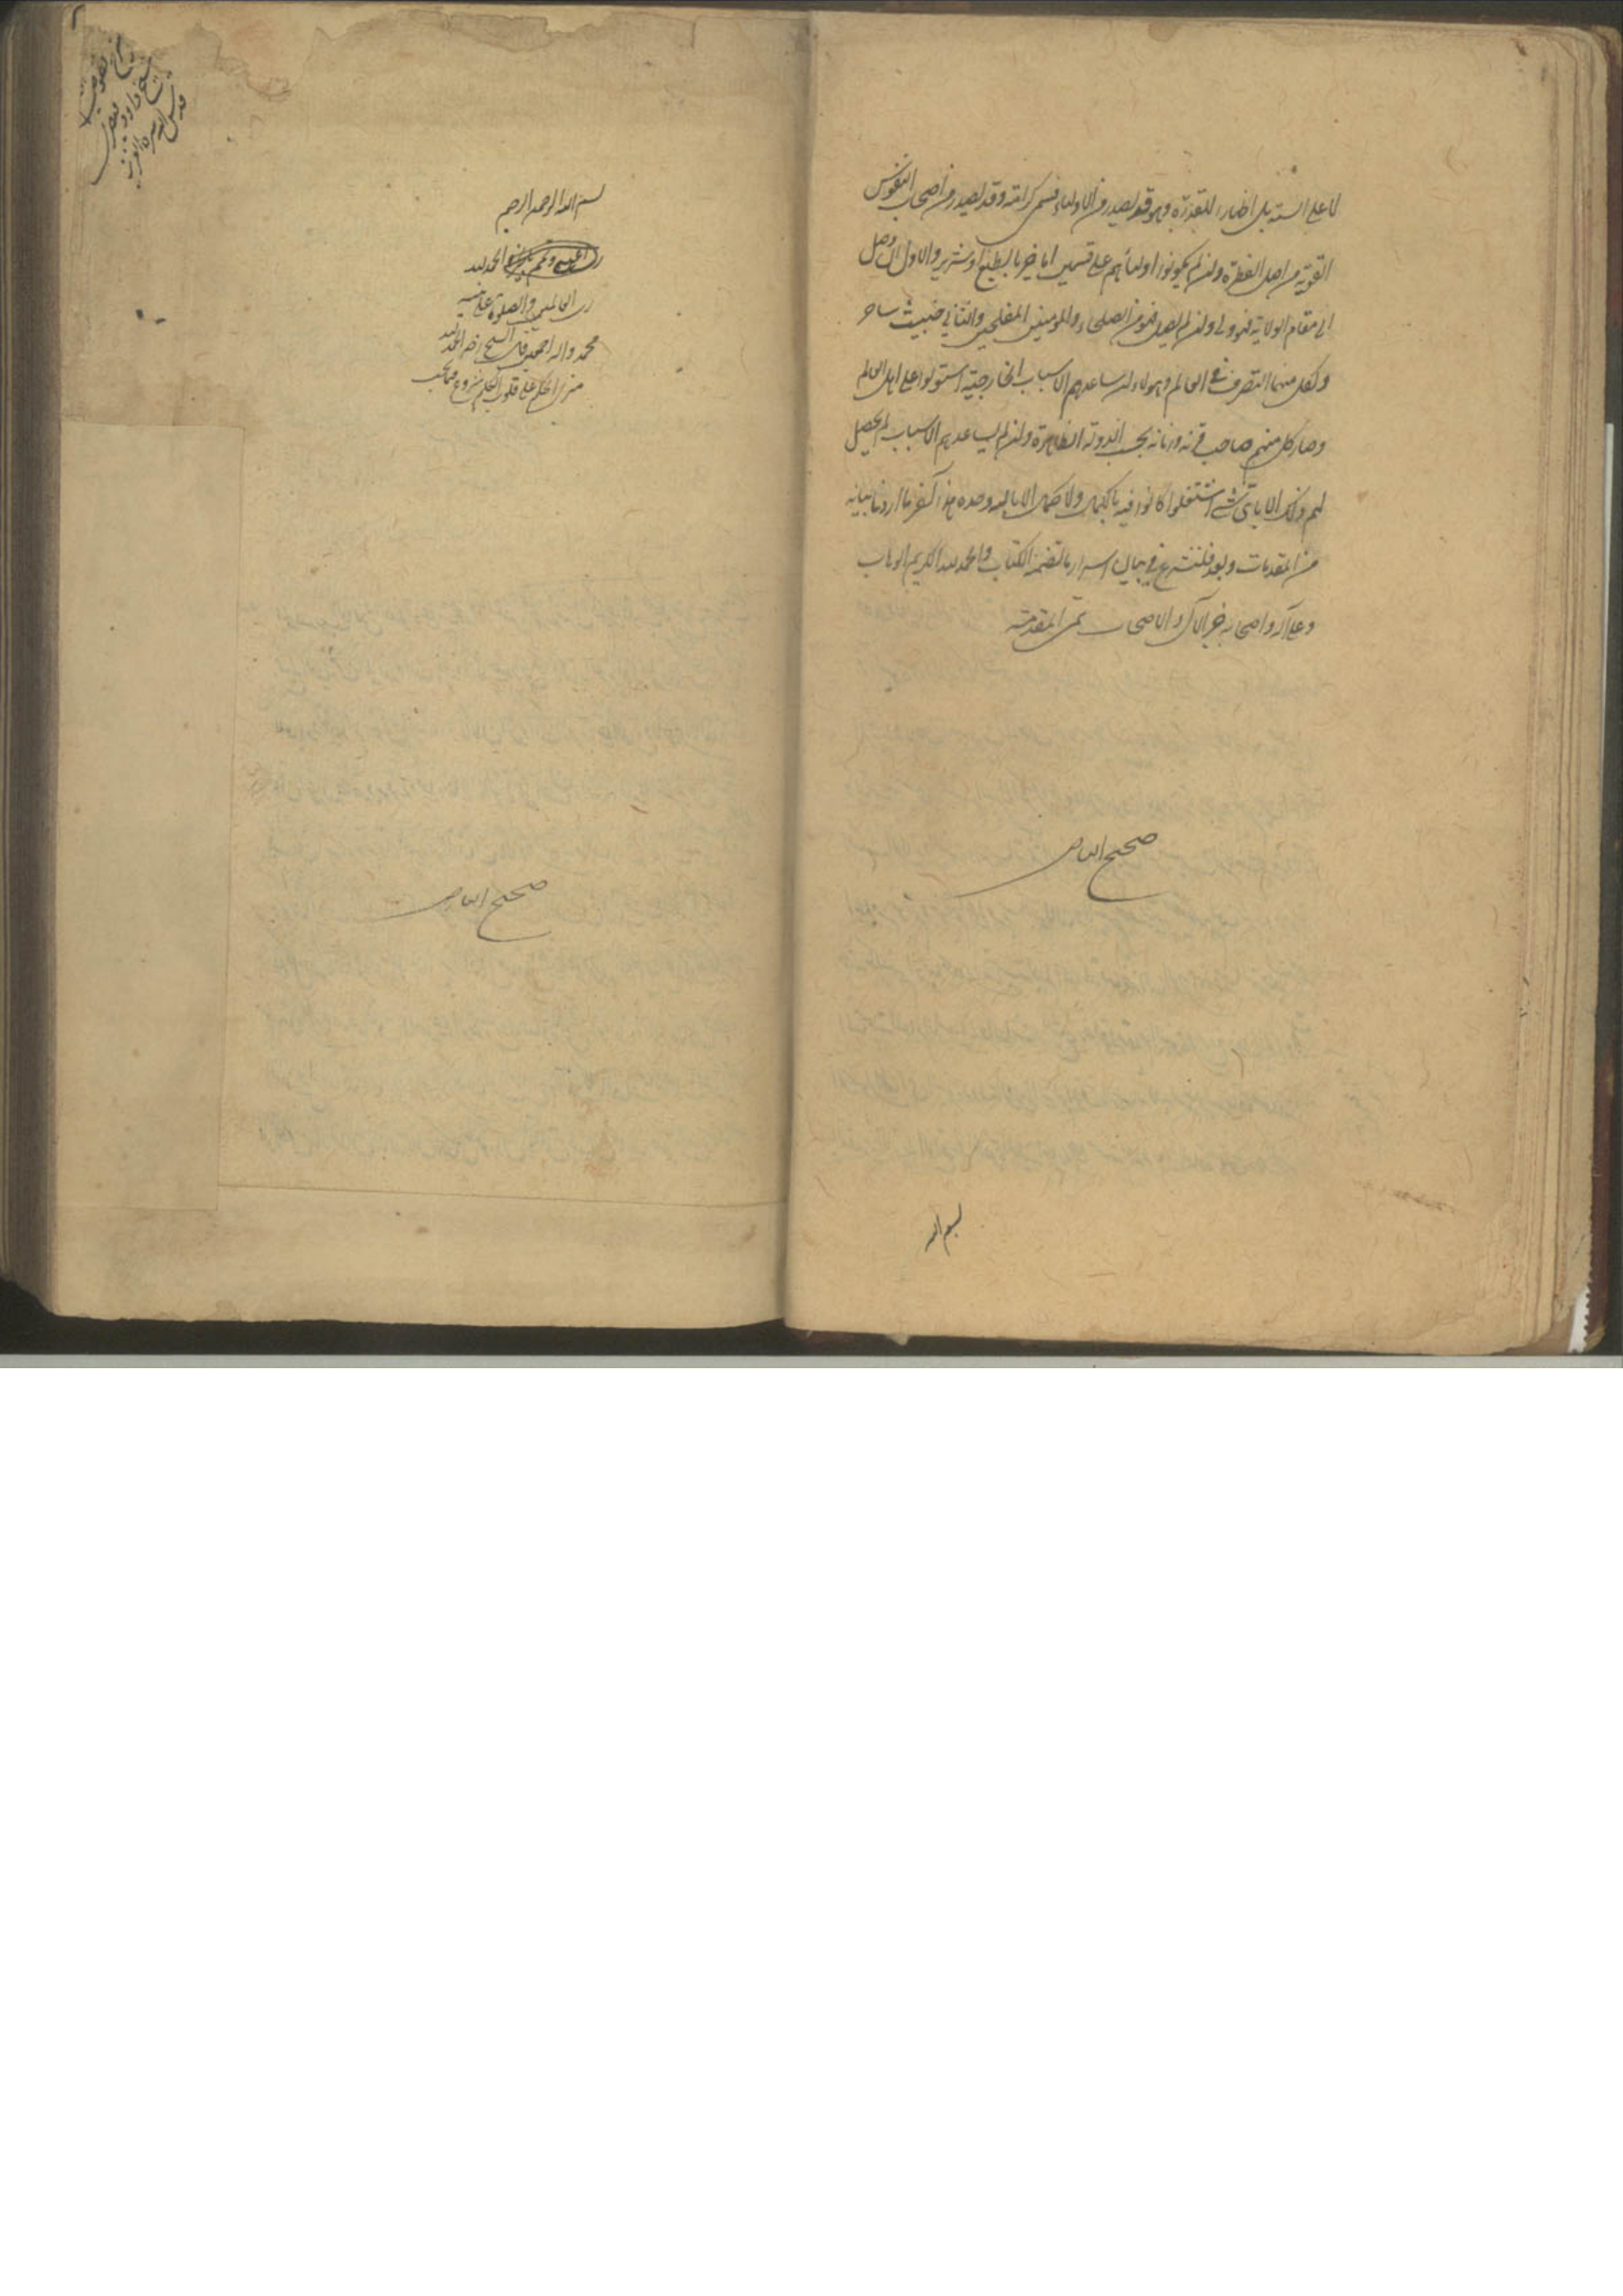 لا على السنة بل اظهار للقدرة وهو قد يصدر من الاولياء فيسمى كرامة وقد يصدر من اصحاب النفوس
القوية من اصل الفطرة وان لم يكونوا اولياء وهم على قسمين اما خير بالطبع او شرير والاول ان وصل
الى مقام الولاية فهو ولى وان لم يصل فهو من الصلحاء والمومنين المفلحين والثانى خبيث ساحر
ولكل منهما التصرف فى العالم وهولاء ان ساعدهم الاسباب الخارجية استولوا على اهل العالم
وصار كل منهم صاحب قرنه وزمانه بحسب الدولة الظاهرة وان لم يساعدهم الاسباب لم يحصل
لهم ذلك الا باى شئ اشتغلوا كانوا فيه بالكمال ولا كمال الا بالله وحده هذا آخر ما اردنا بيانه
من المقدمات وبعد فلنشرع فى بيان اسرار ما تضمنه الكتاب والحمد لله الكريم الوهاب
وعلى آله واصحابه خير الآل والاصحاب تمت المقدمة
صحيح البياض
بسم الله
بسم الله الرحمن الرحيم
الحمد لله
رب العالمين والصلوة على نبيه
محمد واله اجمعين قال الشيخ رضه الحمد لله
منزل الحكم على قلوب الكلم شروع
صحيح البياض
شرح فصوص
شيخ داود قيصرى
قدس الله سره العزيز